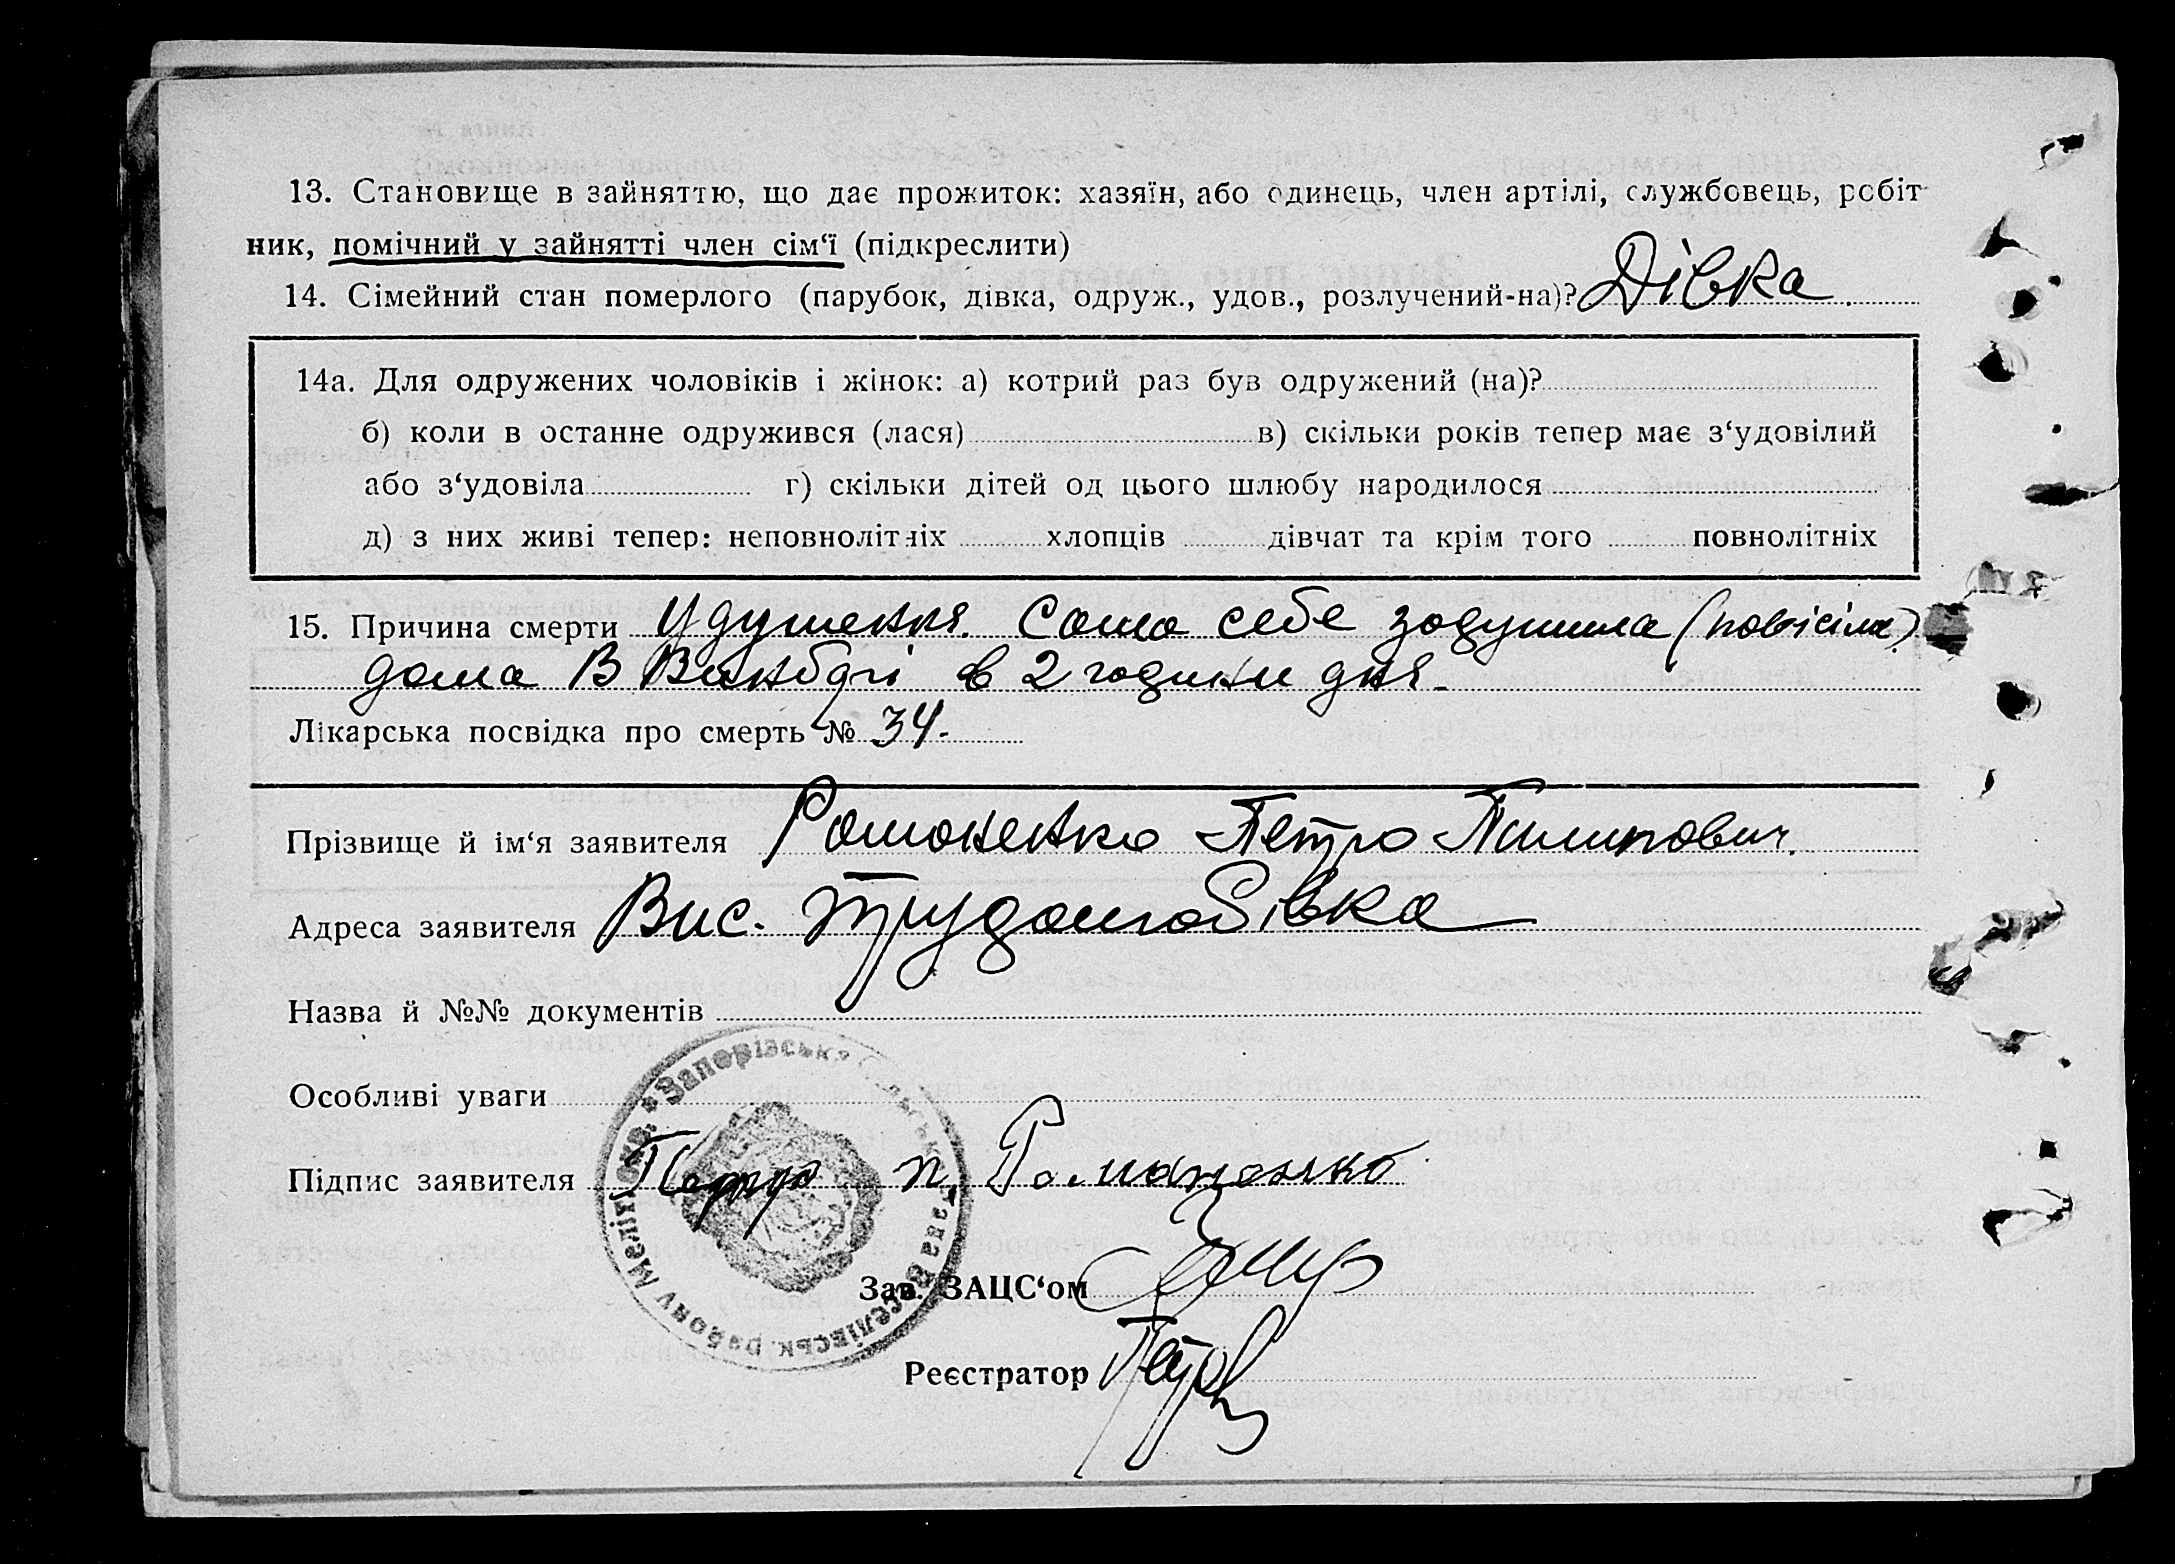 13. Становище в зайняттю, що дає прожиток: хазяїн, або одинець, член артілі, службовець, робіт
ник, помічний у зайнятті член сім‘ї (підкреслити)
14. Сімейний стан померлого (парубок, дівка, одруж., удов., розлучений-на)? Дівка
14а. Для одружених чоловіків і жінок: а) котрий раз був одружений (на)?
б) коли в останне одружився (лася) в) скільки років тепер має з‘удовілий
або з‘удовіла г) скільки дітей од цього шлюбу народилося
д) з них живі тепер: неповнолітніх хлопців дівчат та крім того повнолітніх
15. Причина смерти Удушення. Сама себе задушила (повісіла)
дома в в 2 години дня
Лікарська посвідка про смерть № 34.
Прізвище й ім‘я заявителя Романенко Петро Пилипович.
Адреса заявителя Вис. Трудолюбівка
Назва й №№ документів
Особливі уваги
Підпис заявителя Петро П. Романенко
Зав. ЗАЦС‘ом
Реєстратор
Запорізська Сільська Рада Веселівськ. району Меліт. окр.